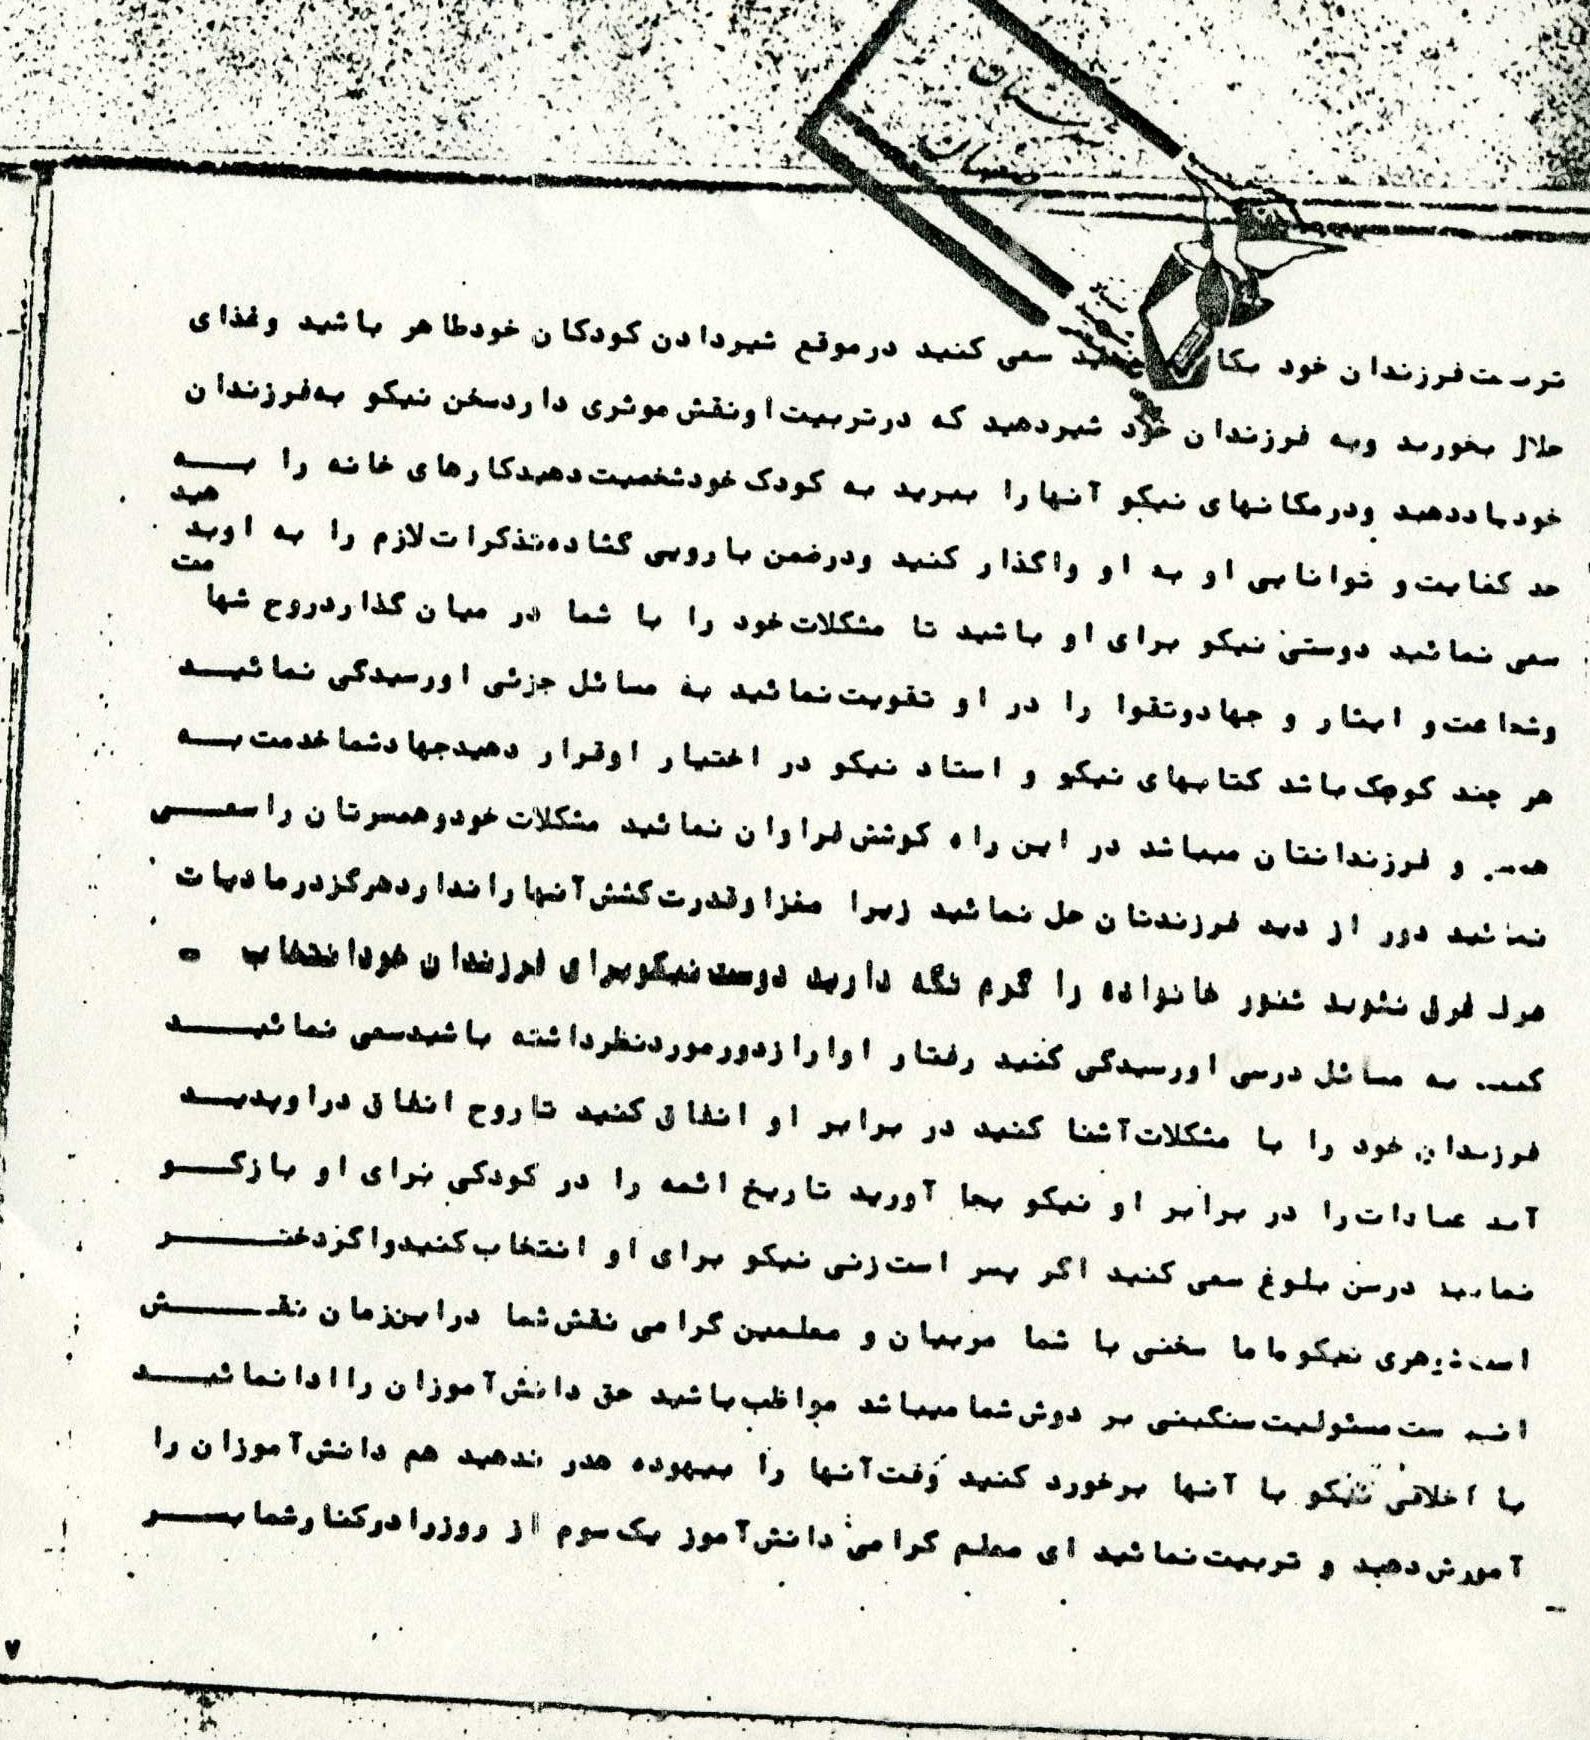 تربیت فرزندان خود بکا دهید سعی کنید درموقع شیردادن کودکان خودطاهر باشید وغذای
حلال بخورید وبه فرزندان خود شیردهید که درتربیت اونقش موثری داردسخن نیکو به‌فرزندان
خودیاددهید ودرمکانهای نیکو آنهارا ببرید به کودک خودشخصیت‌دهیدکارهای خانه را بـــه
حد کفایت‌و توانایی او به او واگذار کنید ودرضمن باروبی گشاده‌تذکرات‌لازم را به اوبد هید
سعی نمائید دوستی نیکو برای او باشید تا مشکلات‌خود را با شما در میان گذاردروح شها مت
وشجاعت‌و ایثار و جهادوتقوا را در او تقویت‌نمائید به مسائل جزئی اورسیدگی نمائیـــد
هر چند کوچک‌باشد کتابهای نیکو و استاد نیکو در اختیار اوقرار دهیدجهادشماخدمت‌بـــه
همسر و فرزندانتان میباشد در این راه کوشش‌فراوان نمائید مشکلات‌خودوهمسرتان راسعـــی
نمائید دور از دید فرزندتان حل نمائید زیرا مغزاوقدرت‌کشش‌آنهاراندارد‌هرگزدرمادیات
غرق نشوید تنور خانواده را گرم نگه دارید دوست‌نیکوبرای فرزندان خودانتخاب -
کنید به مسائل درسی اورسیدگی کنید رفتار اوارازدورموردنظرداشته باشیدسعی نمائیـــد
فرزندان خود را با مشکلات‌آشنا کنید در برابر او انفاق‌کنید تاروح انفاق دراوپدیـــد
آید عبادات‌را در برابر او نیکو بجا آورید تاریخ ائمه را در کودکی برای او بازگـــو
نمایید درسن بلوغ سعی کنید اگر پسر است‌زنی نیکو برای او انتخاب‌کنیدواگردختـــر
است‌شوهری نیکو سخنی با شما مربیان و معلمین گرامی نقش‌شما دراین‌زمان نقـــش
مسئولیت‌سنگینی بر دوش‌شمامیباشد مواظب‌باشید حق دانش‌آموزان راادانمائیـــد
با اخلاقی نیکو با آنها برخورد کنید وقت‌آنها را بیهوده هدر ندهید هم دانش‌آموزان را
آموزش‌دهید و تربیت‌نمائید ای معلم گرامی دانش‌آموز یک‌سوم از روزرادرکنارشمابســـر
۷